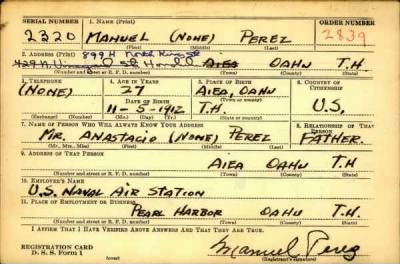 SERIAL NUMBER 1. NAME (Print) ORDER NUMBER
2320 MANUEL (NONE) PEREZ 2839
(First) (Last)
2. ADDRESS (Print) 899 H
AIEA OAHU T.H.
(Number and street or R. F. D. number) (Town) (County) (State)
3. TELEPHONE 4. AGE IN YEARS 5. PLACE OF BIRTH 6. COUNTRY OF CITIZENSHIP
(NONE) 27 AIEA, OAHU
DATE OF BIRTH (Town or county)
11-5-1912 T.H. U.S.
(Exchange) (Number) (Mo.) (Day) (Yr.) (State or country)
7. NAME OF PERSON WHO WILL ALWAYS KNOW YOUR ADDRESS 8. RELATIONSHIP OF THAT PERSON
MR. ANASTACIO (NONE) PEREZ FATHER.
(Mr., Mrs., Miss) (First) (Middle) (Last)
9. ADDRESS OF THAT PERSON
AIEA OAHU T.H
(Number and street or R. F. D. number) (Town) (County) (State)
10. EMPLOYER'S NAME
U.S. NAVAL AIR STATION
11. PLACE OF EMPLOYMENT OR BUSINESS
PEARL HARBOR OAHU T.H.
(Number and street or R. F. D. number) (Town) (County) (State)
I AFFIRM THAT I HAVE VERIFIED ABOVE ANSWERS AND THAT THEY ARE TRUE.
REGISTRATION CARD
D. S. S. Form 1 Manuel Perez
(Registrant's signature)